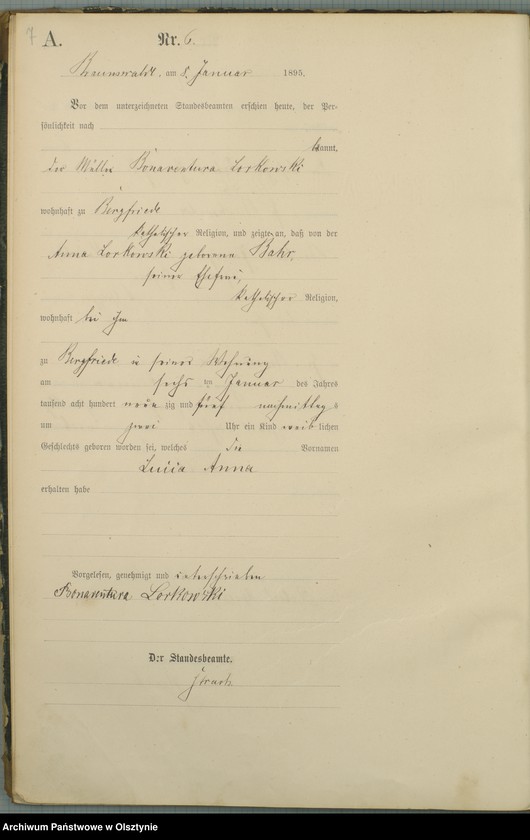 7 A. Nr. 6.
Braunswalde, am 8. Januar 1895.
Vor dem unterzeichneten Standesbeamten erschien heute, der Per-
sönlichkeit nach
kannt,
der Müller Bonaventura Lorkowski
wohnhaft zu Bergfriede
katholischer Religion, und zeigte an, daß von der
Anna Lorkowski geborene Bahr,
seiner Ehefrau,
katholischer Religion,
wohnhaft bei ihm
zu Bergfriede in seiner Wohnung
am sechs ten Januar des Jahres
tausend acht hundert neun zig und fünf nachmittags
um zwei Uhr ein Kind weib lichen
Geschlechts geboren worden sei, welches die Vornamen
Lucia Anna
erhalten habe
Vorgelesen, genehmigt und unterschrieben
Bonaventura Lorkowski
Der Standesbeamte.
Archiwum Państwowe w Olsztynie